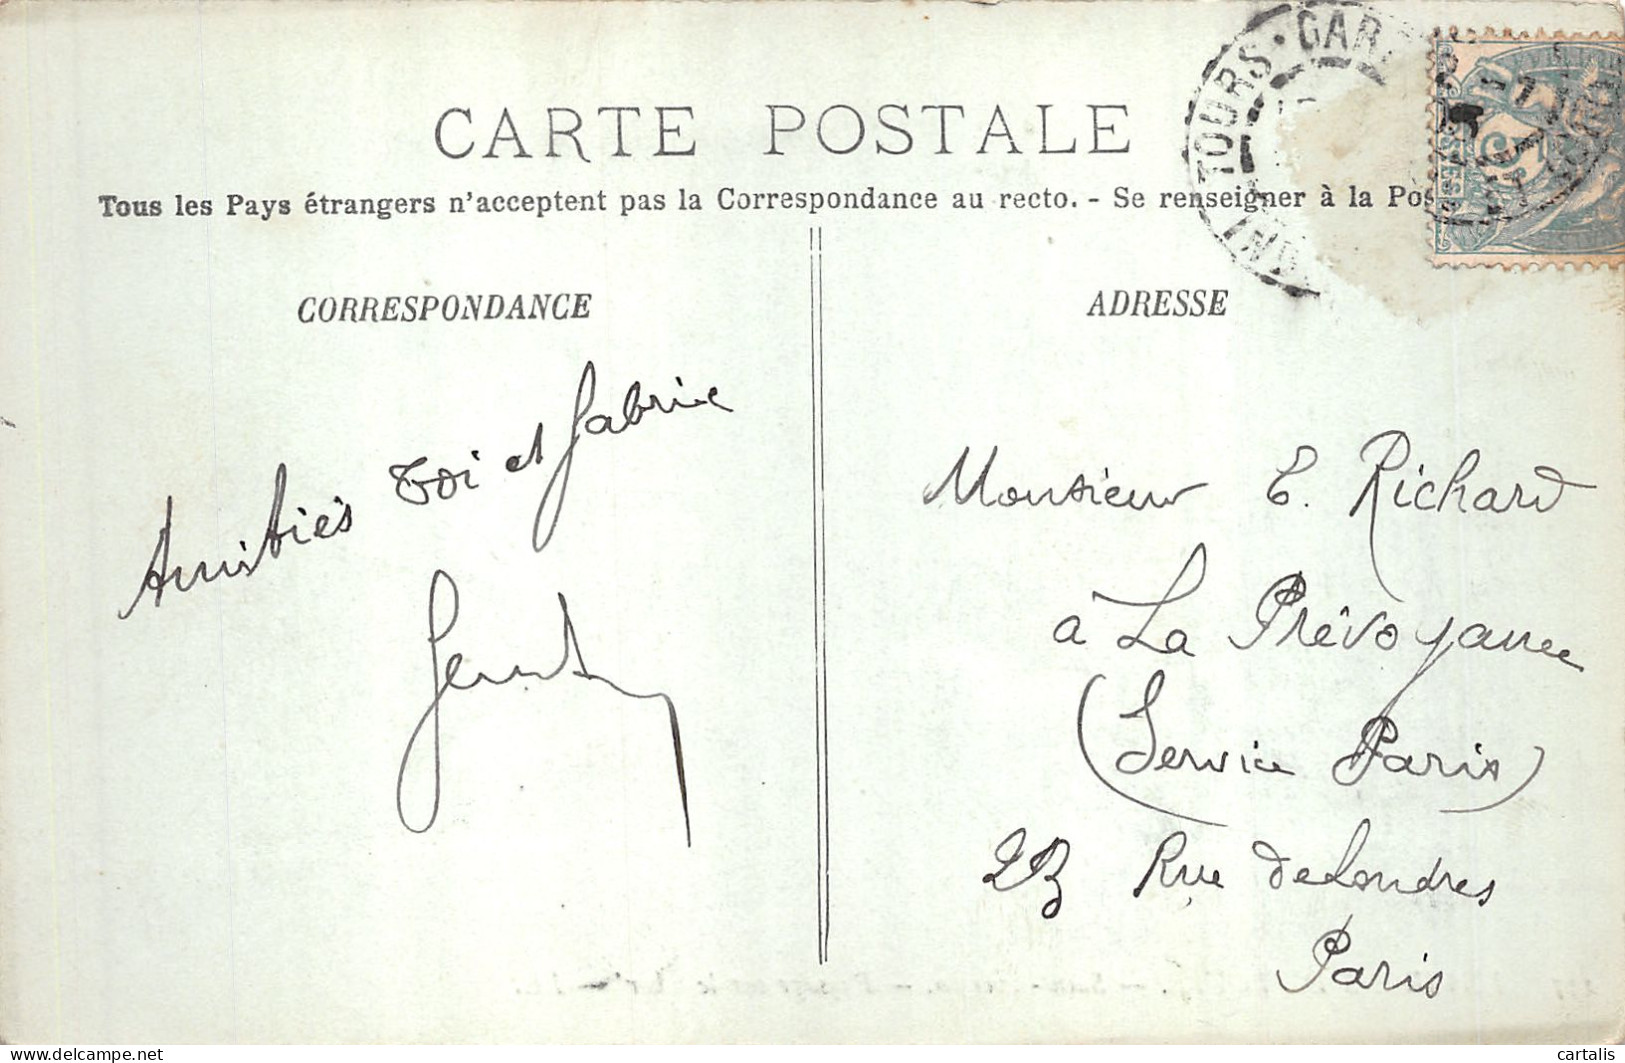 CARTE POSTALE
Tous les Pays étrangers n'acceptent pas la Correspondance au recto. - Se renseigner à la Pos
TOURS · GAR
CORRESPONDANCE
ADRESSE
Amitiés toi et Gabrie
Monsieur E. Richard
à La Prévoyance
(Service Paris)
23 Rue de Londres
Paris
delcampe.net
cartalis